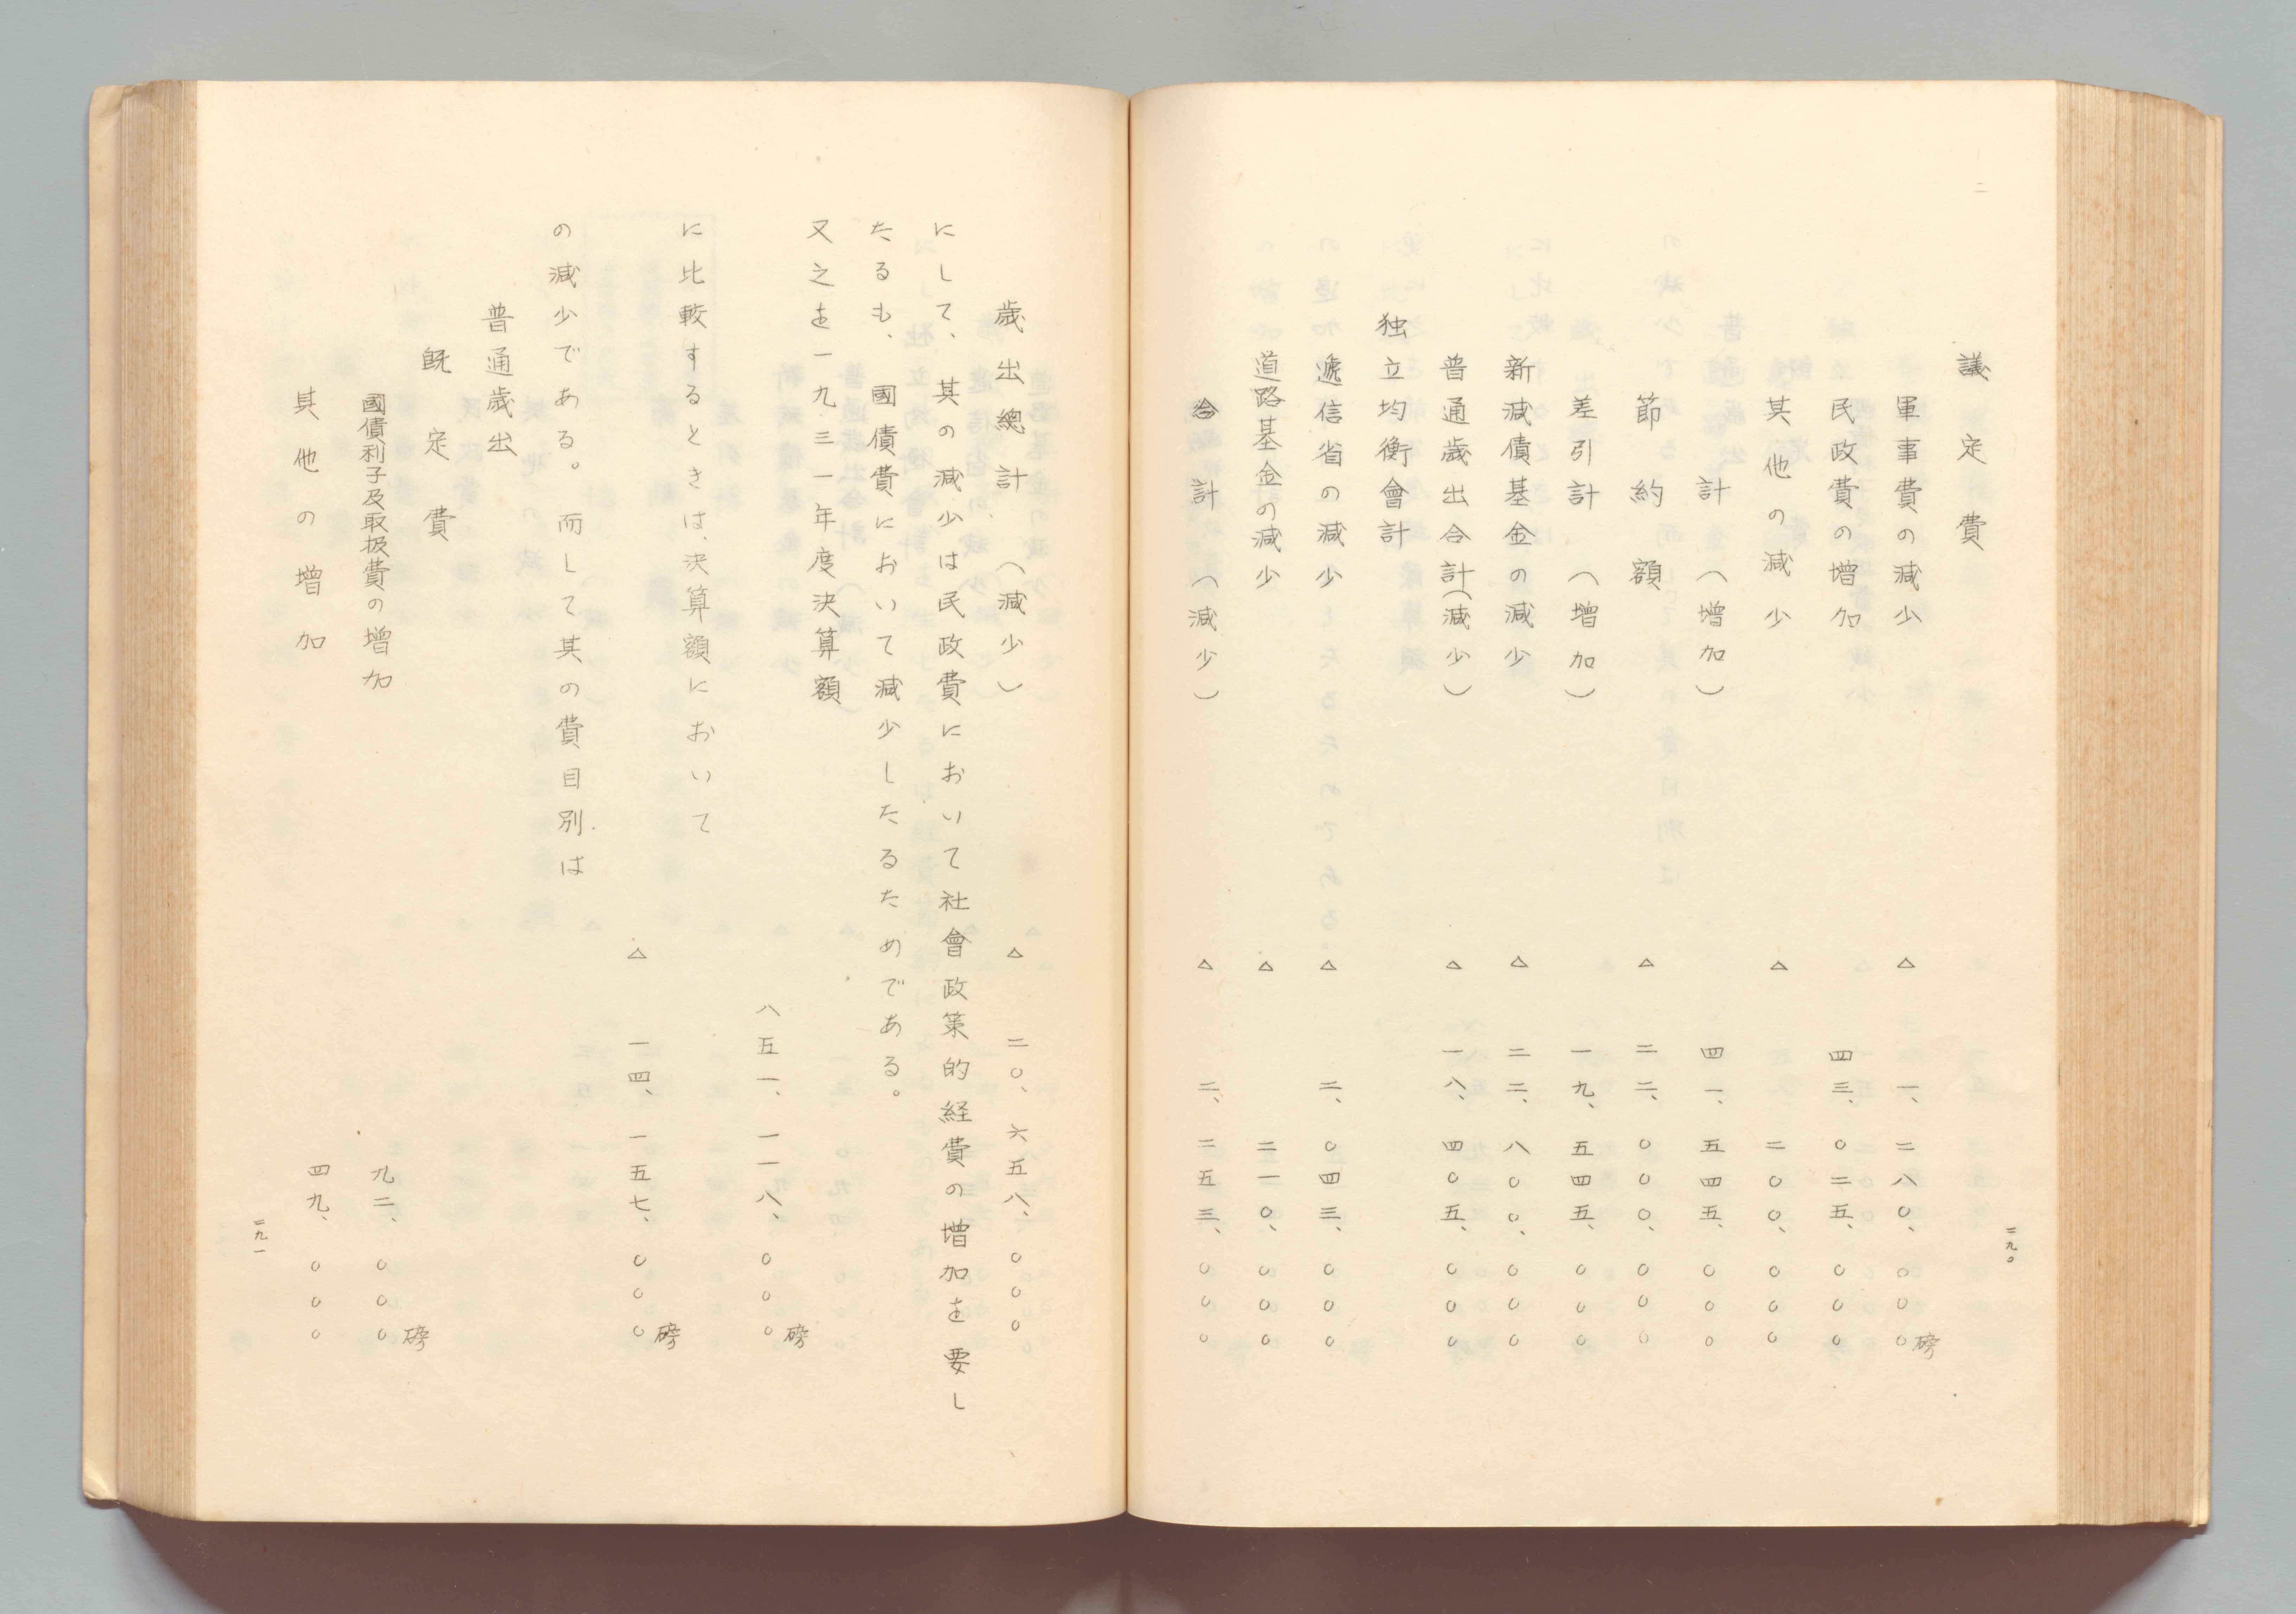 議定費
軍事費の減少 △ 一、二八〇、〇〇〇磅
民政費の増加 四三、〇二五、〇〇〇
其他の減少 △ 二〇〇、〇〇〇
計（増加） 四一、五四五、〇〇〇
節約額 △ 二二、〇〇〇、〇〇〇
差引計（増加） 一九、五四五、〇〇〇
新減債基金の減少 △ 二二、八〇〇、〇〇〇
普通歳出合計（減少） △ 一八、四〇五、〇〇〇
独立均衡會計
逓信省の減少 △ 二、〇四三、〇〇〇
道路基金の減少 △ 二一〇、〇〇〇
合計（減少） △ 二、二五三、〇〇〇
二九〇
歳出總計（減少） △ 二〇、六五八、〇〇〇
にして、其の減少は民政費において社會政策的経費の増加を要し
たるも、國債費において減少したるためである。
又之を一九三一年度決算額
八五一、一一八、〇〇〇磅
に比較するときは、決算額において
△ 一四、一五七、〇〇〇磅
の減少である。而して其の費目別は
普通歳出
既定費
國債利子及取扱費の増加 九二、〇〇〇磅
其他の増加 四九、〇〇〇
二九一